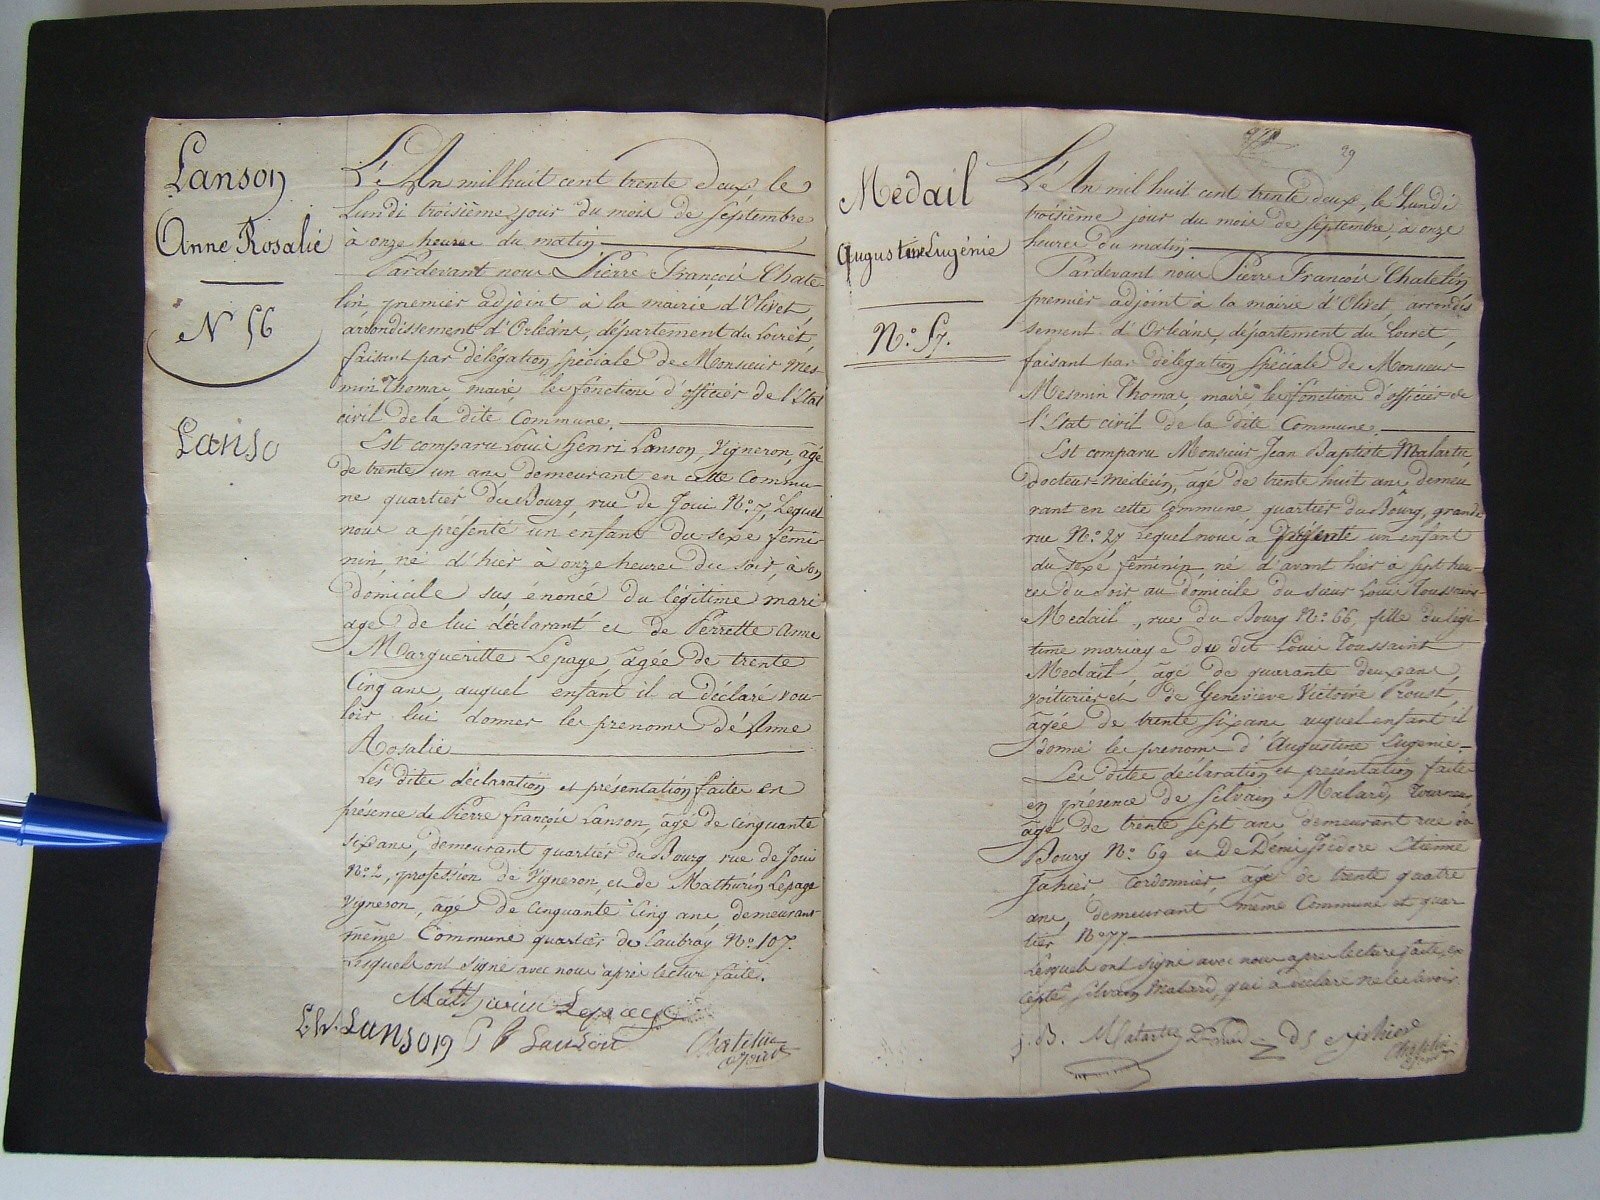 Lanson
Anne Rosalie
N 56
Lanso
L'An mil huit cent trente deux le
Lundi troisième jour du mois de Septembre
à onze heures du matin
Pardevant nous Pierre François Chate-
lin, premier adjoint à la mairie d'Olivet,
arrondissement d'Orléans, département du Loiret,
faisant par délégation spéciale de Monsieur Mes-
min Thomas, maire, les fonctions d'officier de l'Etat
civil de la dite Commune.
Est comparu Louis Henri Lanson, Vigneron, âgé
de trente un ans, demeurant en cette Commu-
ne quartier du Bourg, rue de Joui N° 7, Lequel
nous a présenté un enfant du sexe fémi-
nin, né d'hier à onze heures du soir, à son
domicile sus énoncé du légitime mari
age de lui déclarant et de Perrette Anne
Margueritte Lepage âgée de trente
Cinq ans, auquel enfant il a déclaré vou-
loir lui donner les prenoms de Anne
Rosalie
Les dites déclaration et présentation faites en
présence de Pierre françois Lanson, âgé de cinquante
six ans, demeurant quartier du Bourg rue de Joui
N° 2, profession de Vigneron, et de Mathurin Lepage
vigneron, âgé de cinquante cinq ans, demeurant
même Commune quartier de Caubray N° 107.
Lesquels ont signé avec nous après lecture faite.
Mathurin Lepage
L h. Lanson P f Lanson Chatelin
adjoint
29
Medail
Augustine Eugénie
N° 57.
L'An mil huit cent trente deux, le Lundi
troisième jour du mois de Septembre, à onze
heures du matin
Pardevant nous Pierre François Chatelin
premier adjoint à la mairie d'Olivet, arrondis
sement d'Orléans, département du Loiret,
faisant par délégation spéciale de Monsieur
Mesmin Thomas, maire, les fonctions d'officier de
l'Etat civil de la dite Commune.
Est comparu Monsieur Jean Baptiste Malartic
docteur-médecin, âgé de trente huit ans, demeu
rant en cette Commune quartier du Bourg, grande
rue N° 27 Lequel nous a présenté un enfant
du sexe féminin, né d'avant hier à sept heu-
res du soir au domicile du sieur Louis Toussaint
Medail, rue du Bourg N° 66, fille du légi
time mariage du dit Louis Toussaint
Medail âgé de quarante deux ans,
voiturier et de Geneviève Victoire Proust,
âgée de trente six ans auquel enfant il
donne les prenoms d'Augustine Eugénie-
Les dites déclaration et présentation faites
en présence de Silvain Malard, Tourneur
âgé de trente sept ans demeurant rue du
Bourg N° 69 et de Denis Isidore Etienne
Jahier, Cordonnier, âgé de trente quatre
ans, demeurant même Commune et quar
tier N° 77
Lesquels ont signé avec nous après lecture faite, ex
cepté Silvain Malard, qui a déclaré ne le savoir.
J. B. Malartic D. Jahier Chatelin